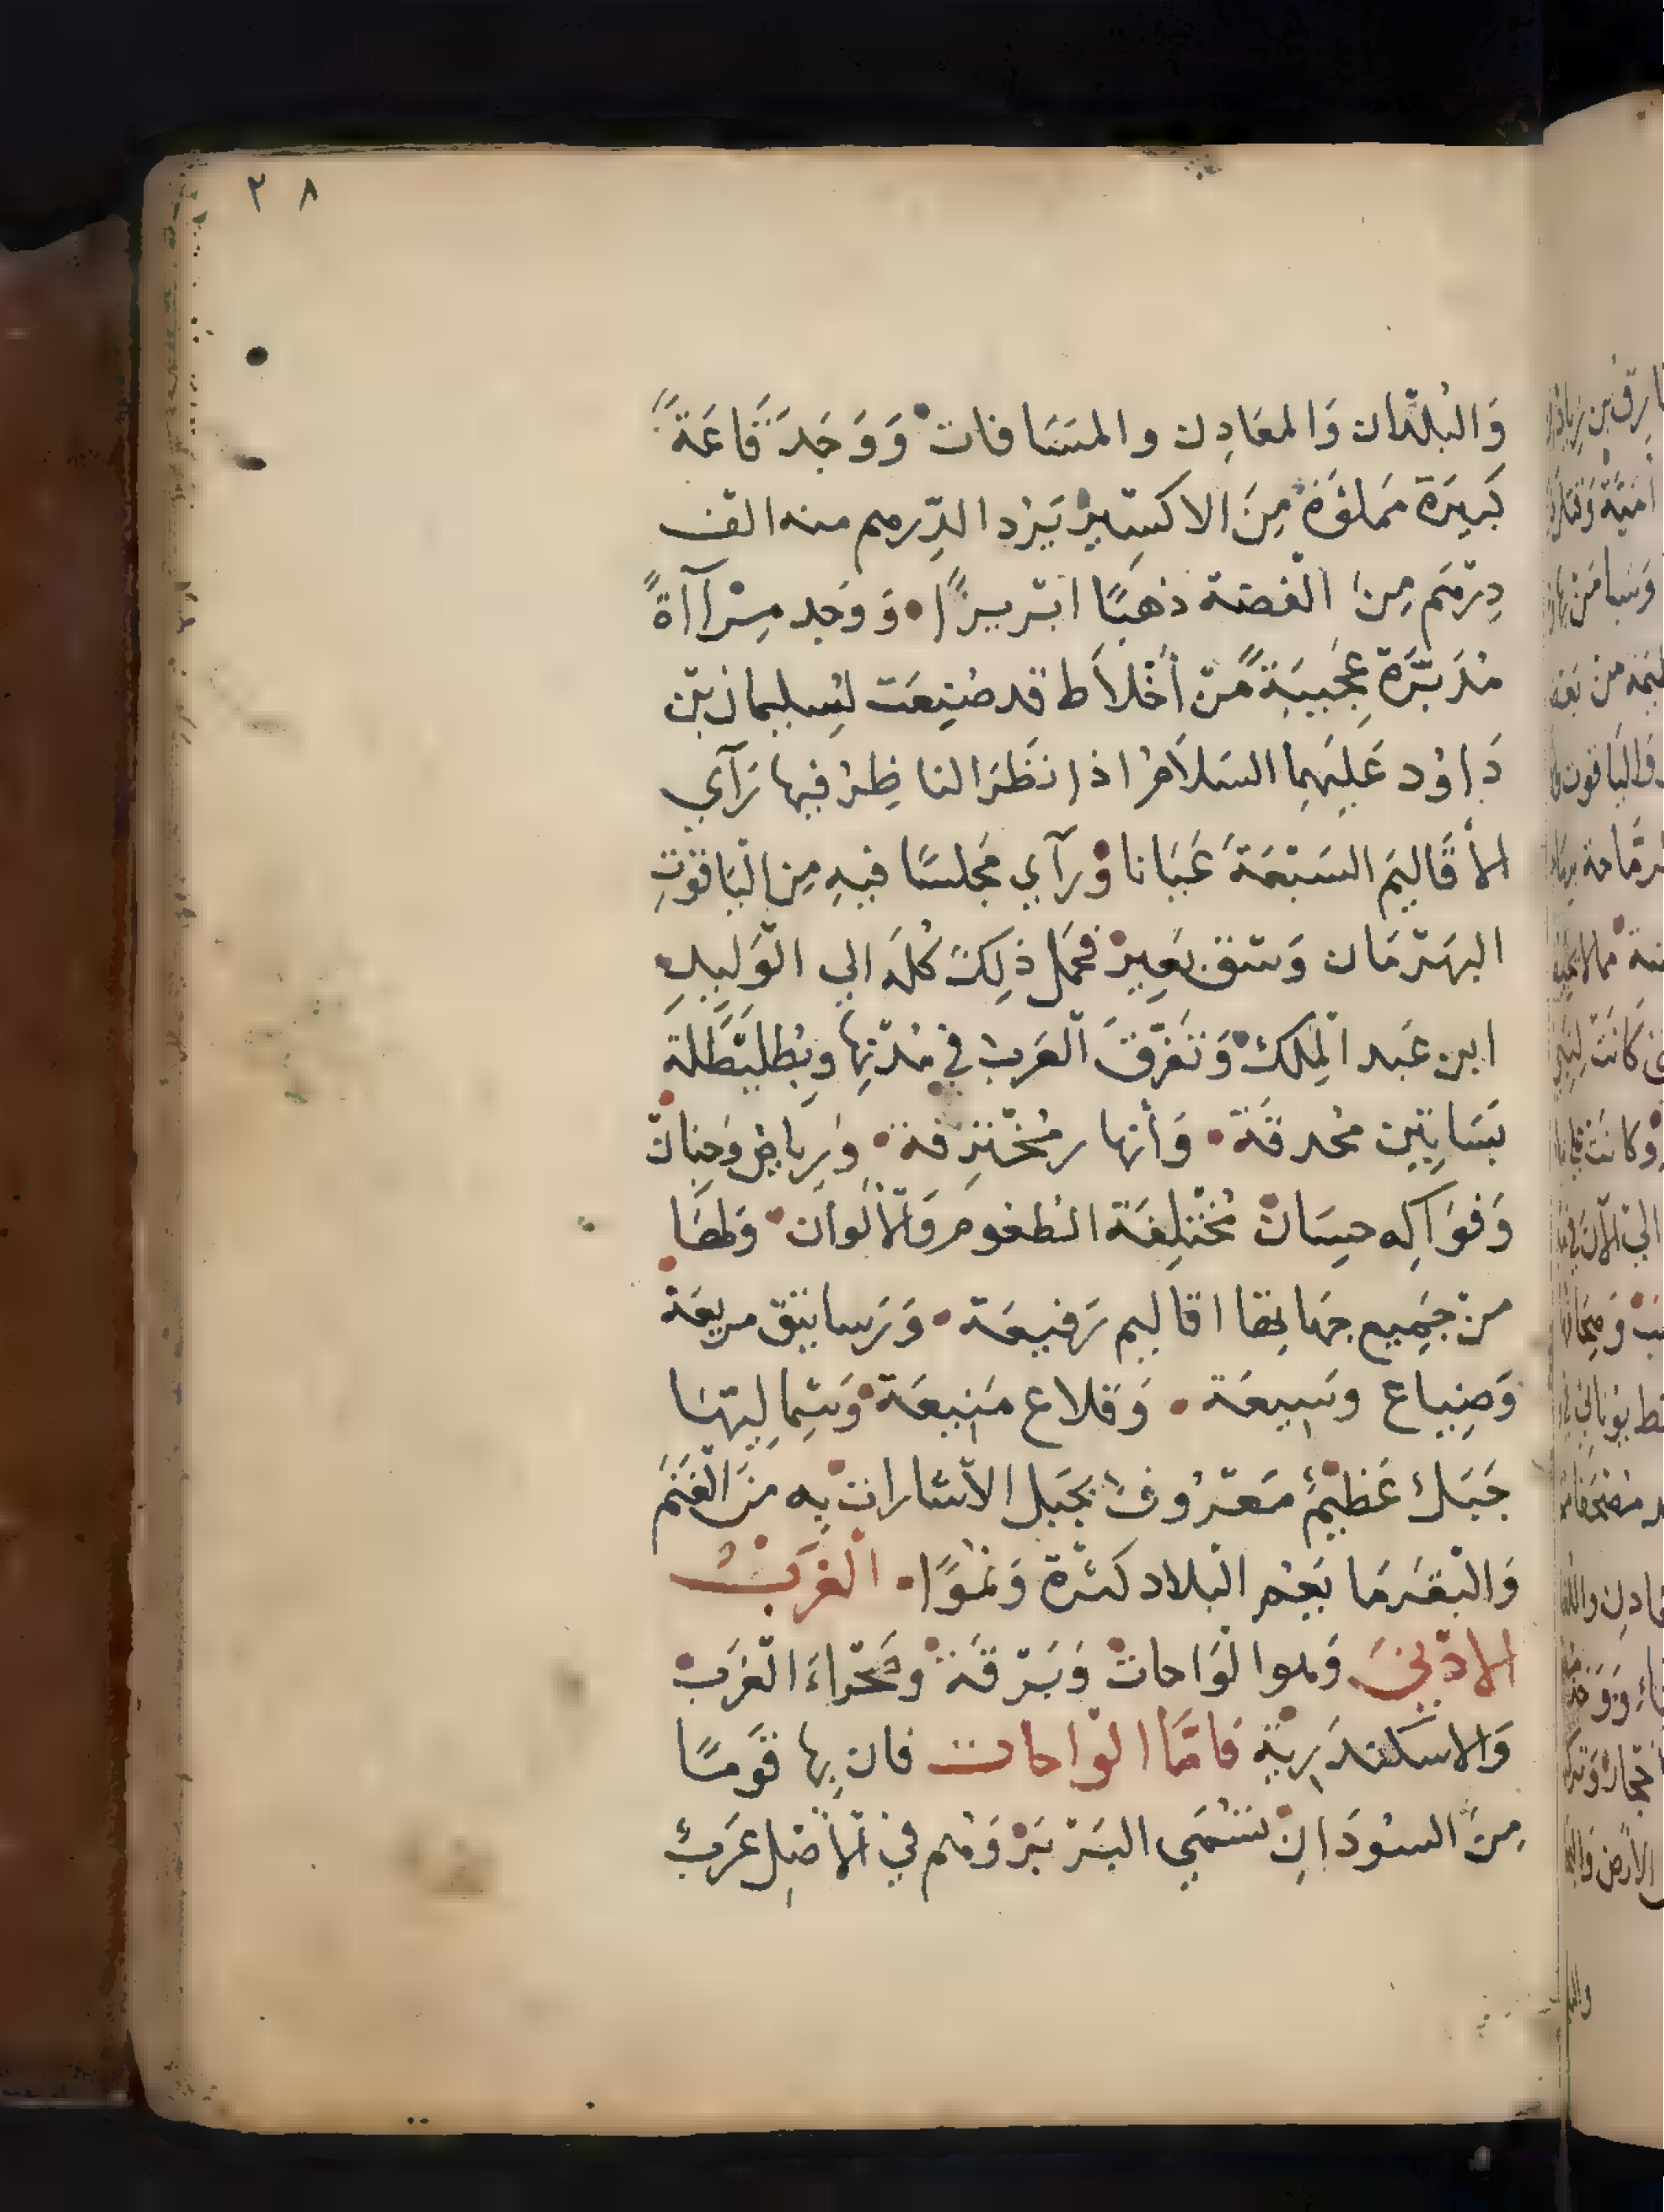 ٣٨
وَالبُلدَان وَالمعَادِن والمسَافات وَوَجَدَ قَاعَةً
كَبِيرَة مَملوَة مِنَ الاكسِير يَرد الدِرهم منه الف
دِرهَم مِن الفضة ذهبًا ابريزًا • وَوَجد مِرآآةً
مُدَبَّرَة عَجِيبَةً مّن أخْلاَط قد صُنِعَت لسُليمان بن
دَاوُد عَلَيهِما السَلاَمُ اذا نَظَرَ الناظِرُ فيها رَآي
الأقَاليَم السَبْعَةَ عَيَانا وَرآي مَجلسًا فيهِ مِن اليَاقوُتِ
البهَرمَان وَسْق بَعِيرْ فحَمل ذلِكَ كُلَه الي الوَليدِ
ابن عَبد الملِك وَتَفَرَّقَ العَربُ في مُدْنِها وبطليَطلة
بَسَاتِين محُدقَة • وَأنهار مُختَرِقة • وَرياض وَجنانْ
وَفوَاكِه حِسَانْ مُختَلِفَة الطعُومِ وَالألْوان • وَلهَا
من جَمِيع جهاتها اقاليم رَفيعَة • وَرَساتيق مريعَة
وَضِياع وَسيعَة • وَقلاع مَنيعَة وَشِماليتهَا
جَبَلٌ عَظِيمٌ مَعرُوفٌ بجَبل الاشارات به منَ الغَنَم
وَالبقَر مَا يَعُم البلاد كثرة وَنموًا • الغَربُ
الادْنيَ وَهو الوَاحاتْ وَبَرقَة وصَحراءَ الغَربْ
وَالاسكندَرية فَامَّا الواحات فان بها قَومًا
مِنَ السودَانِ تسَمي البَربَر وَهُم في الأصْل عَربٌ